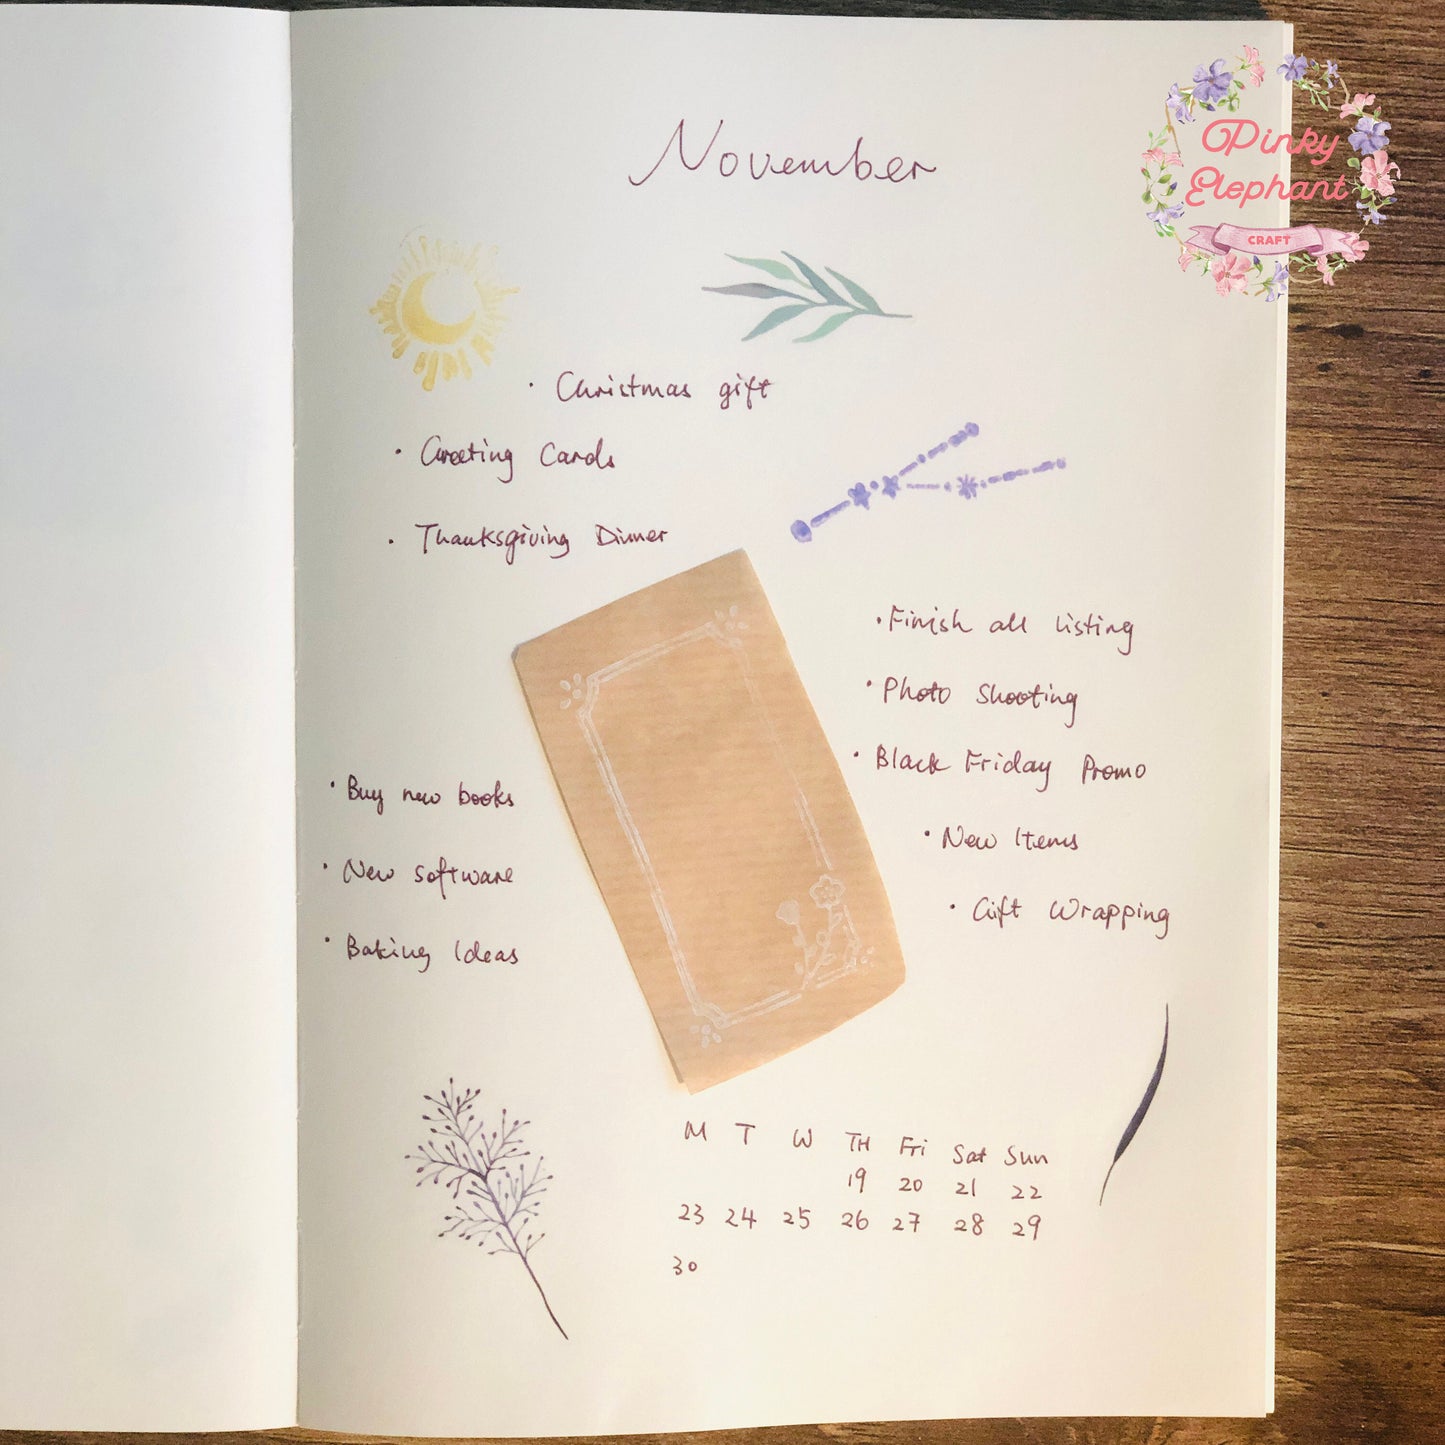 November
Pinky
Elephant
CRAFT
· Christmas gift
· Greeting Cards
· Thanksgiving Dinner
· Finish all listing
· Photo Shooting
· Black Friday Promo
· New Items
· Gift Wrapping
· Buy new books
· New software
· Baking Ideas
M T W TH Fri Sat Sun
19 20 21 22
23 24 25 26 27 28 29
30